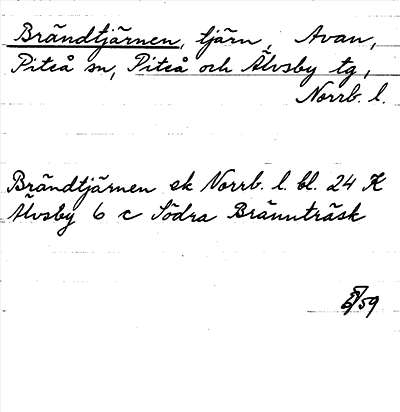 Brändtjärnen, tjärn, Avan,
Piteå sn, Piteå och Älvsby tg,
Norrb. l.
Brändtjärnen ek Norrb. l. bl. 24 K
Älvsby 6 c Södra Brännträsk